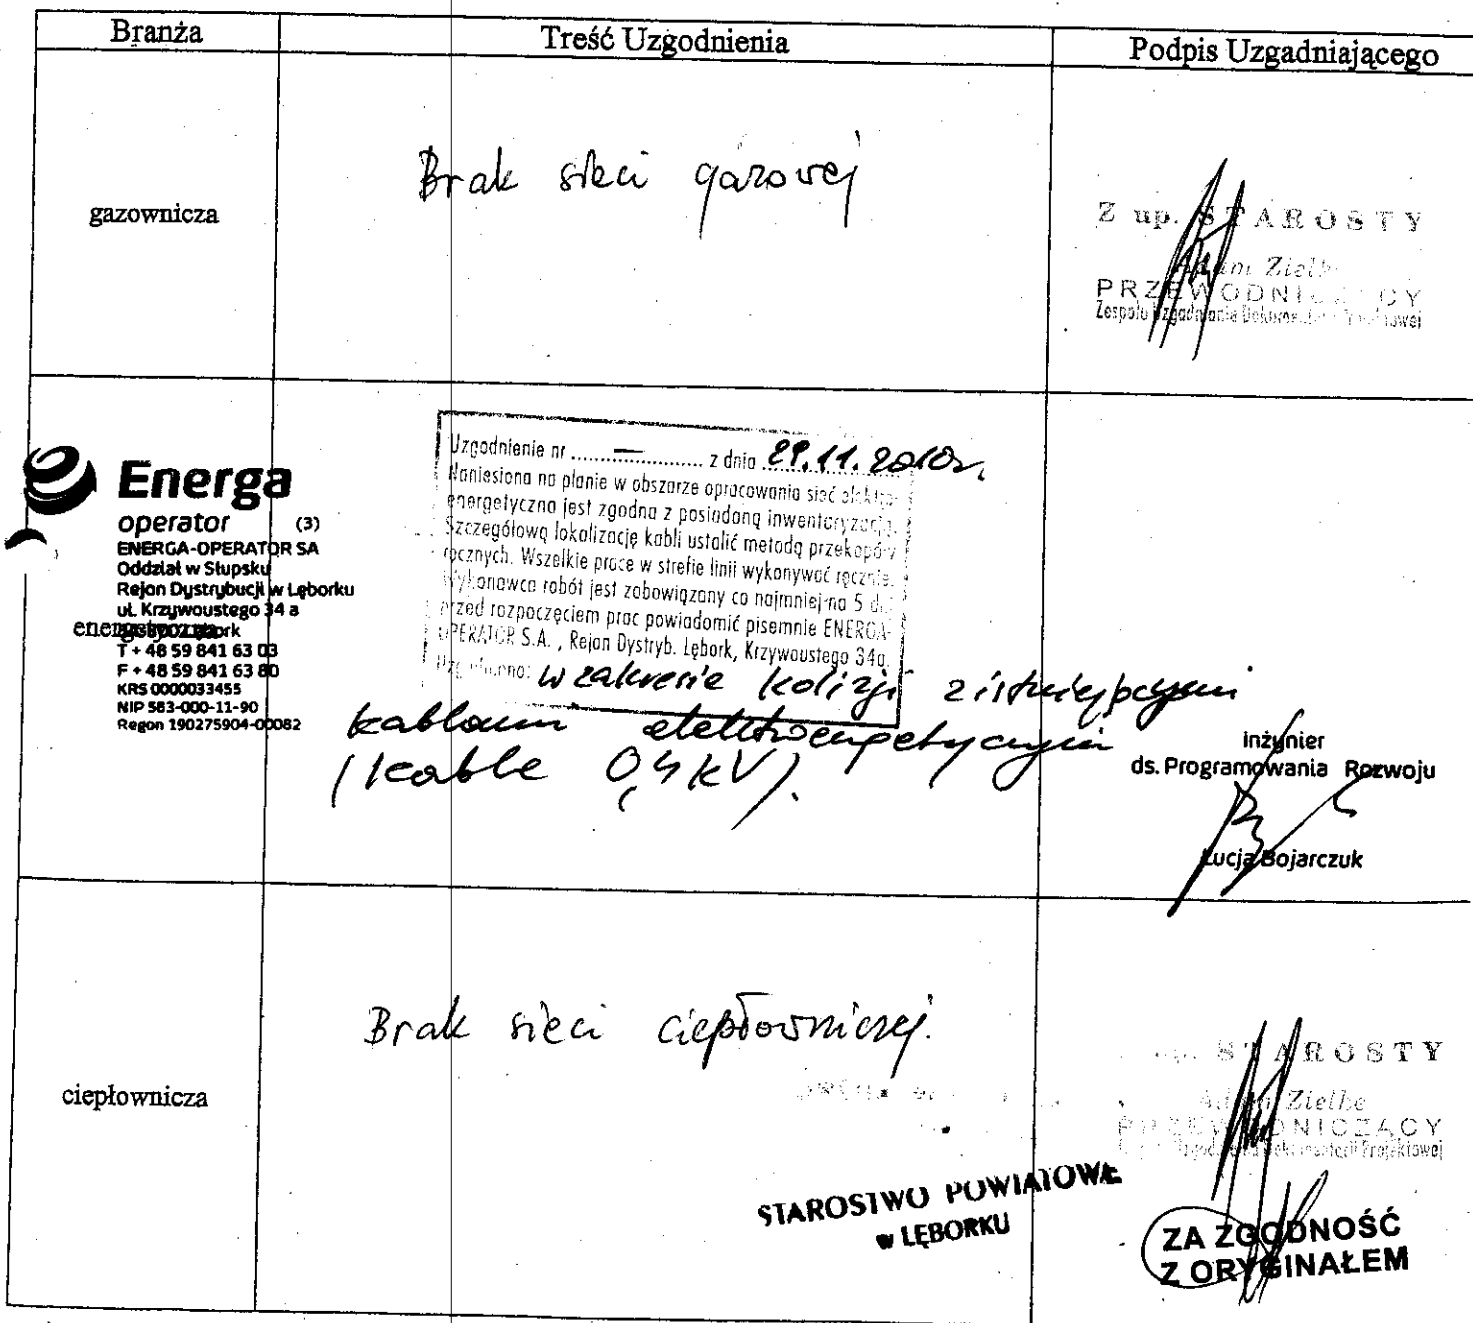 Branża
Treść Uzgodnienia
Podpis Uzgadniającego
gazownicza
Brak sieci gazowej
Z up. STAROSTY
Adam Zielke
PRZEWODNICZĄCY
Zespołu Uzgadniania Dokumentacji Projektowej
Energa
operator (3)
ENERGA-OPERATOR SA
Oddział w Słupsku
Rejon Dystrybucji w Lęborku
ul. Krzywoustego 34 a
energetyczna
T + 48 59 841 63 03
F + 48 59 841 63 80
KRS 0000033455
NIP 583-000-11-90
Regon 190275904-00082
Uzgodnienie nr ....—.... z dnia 29.11.2010r.
Naniesiona na planie w obszarze opracowania sieć elektro-
energetyczna jest zgodna z posiadaną inwentaryzacją.
Szczegółową lokalizację kabli ustalić metodą przekopów
ręcznych. Wszelkie prace w strefie linii wykonywać ręcznie.
Wykonawca robót jest zobowiązany co najmniej na 5 dni
przed rozpoczęciem prac powiadomić pisemnie ENERGA-
OPERATOR S.A., Rejon Dystryb. Lębork, Krzywoustego 34a.
Uzgodniono: w zakresie kolizji z istniejącymi
kablami elektroenergetycznymi
(kable 0,4 kV).
inżynier
ds. Programowania Rozwoju
Łucja Bojarczuk
ciepłownicza
Brak sieci ciepłowniczej.
up. STAROSTY
Adam Zielke
PRZEWODNICZĄCY
Zespołu Uzgadniania Dokumentacji Projektowej
STAROSTWO POWIATOWE
w LĘBORKU
ZA ZGODNOŚĆ
Z ORYGINAŁEM